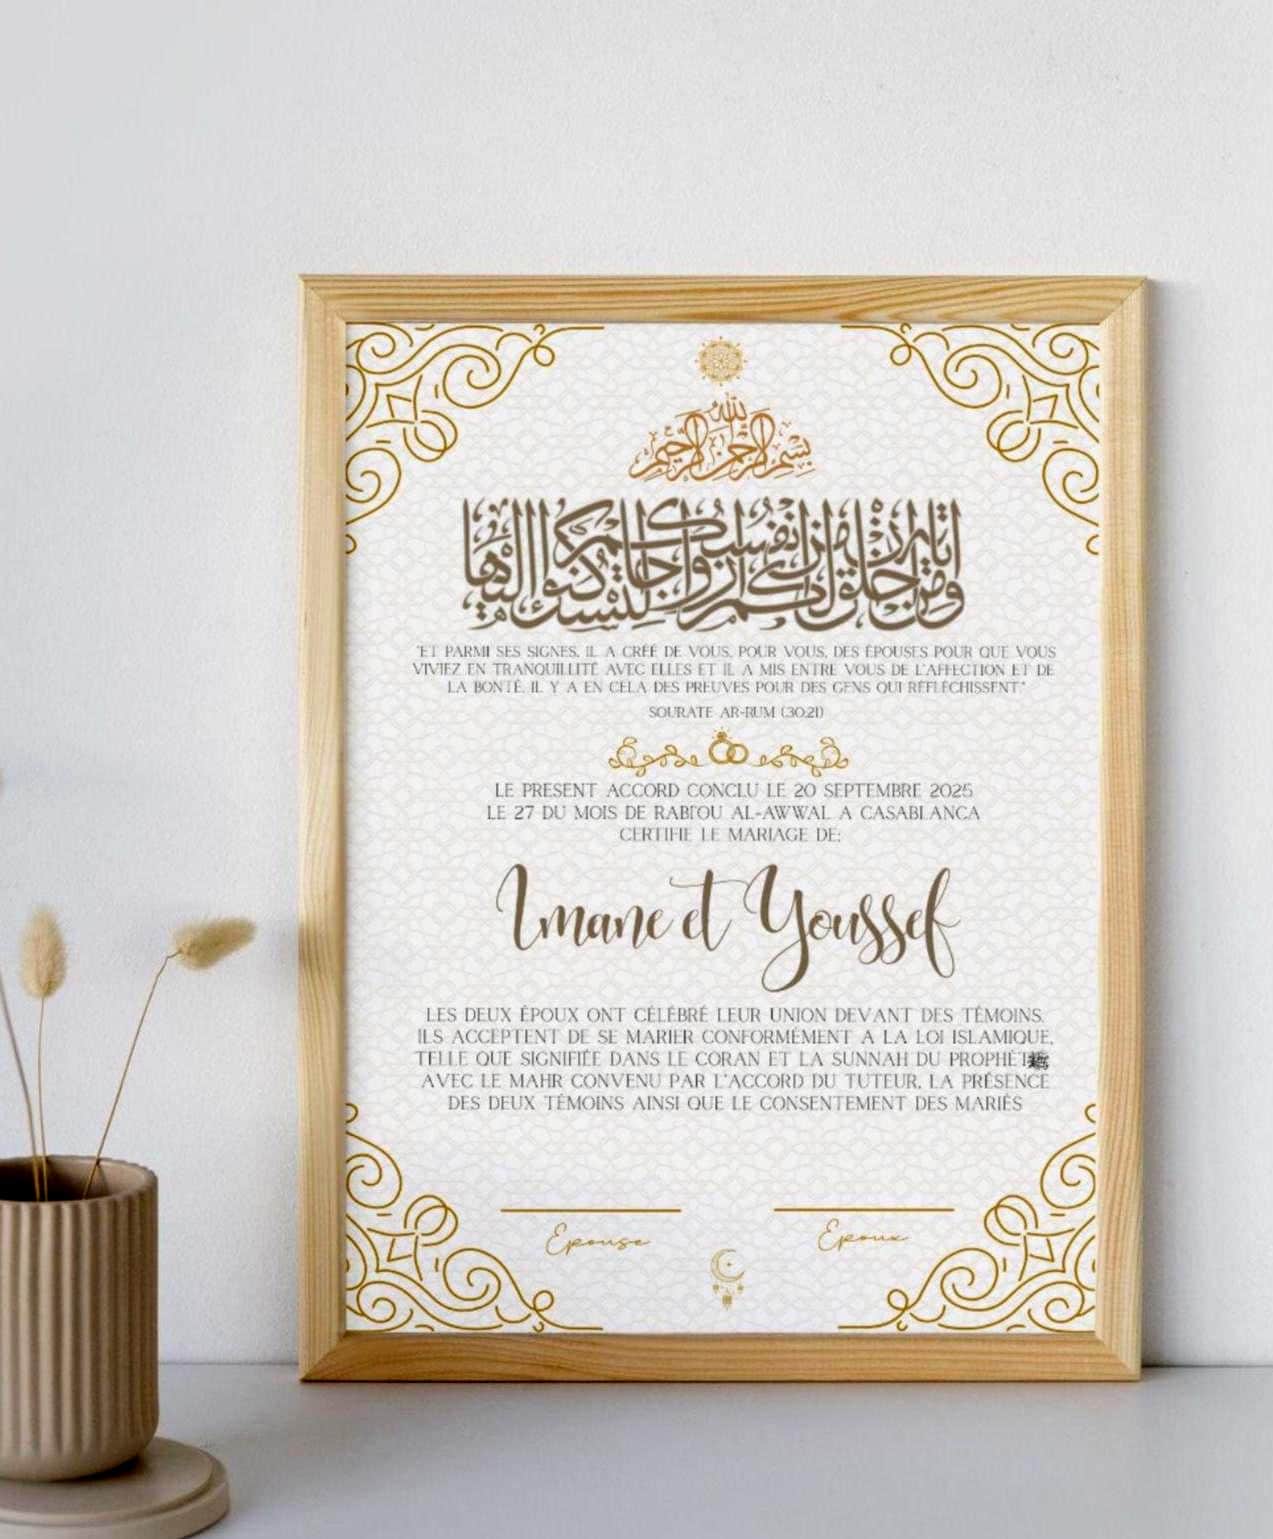 بسم الله الرحمن الرحيم
ومن آياته أن خلق لكم من أنفسكم أزواجا لتسكنوا إليها
"ET PARMI SES SIGNES, IL A CRÉÉ DE VOUS, POUR VOUS, DES ÉPOUSES POUR QUE VOUS
VIVIEZ EN TRANQUILLITÉ AVEC ELLES ET IL A MIS ENTRE VOUS DE L'AFFECTION ET DE
LA BONTÉ. IL Y A EN CELA DES PREUVES POUR DES GENS QUI RÉFLÉCHISSENT."
SOURATE AR-RUM (30:21)
LE PRESENT ACCORD CONCLU LE 20 SEPTEMBRE 2025
LE 27 DU MOIS DE RABI'OU AL-AWWAL A CASABLANCA
CERTIFIE LE MARIAGE DE:
Imane et Youssef
LES DEUX ÉPOUX ONT CÉLÉBRÉ LEUR UNION DEVANT DES TÉMOINS.
ILS ACCEPTENT DE SE MARIER CONFORMÉMENT A LA LOI ISLAMIQUE,
TELLE QUE SIGNIFIÉE DANS LE CORAN ET LA SUNNAH DU PROPHÈTE ﷺ
AVEC LE MAHR CONVENU PAR L'ACCORD DU TUTEUR, LA PRÉSENCE
DES DEUX TÉMOINS AINSI QUE LE CONSENTEMENT DES MARIÉS
Epouse Epoux